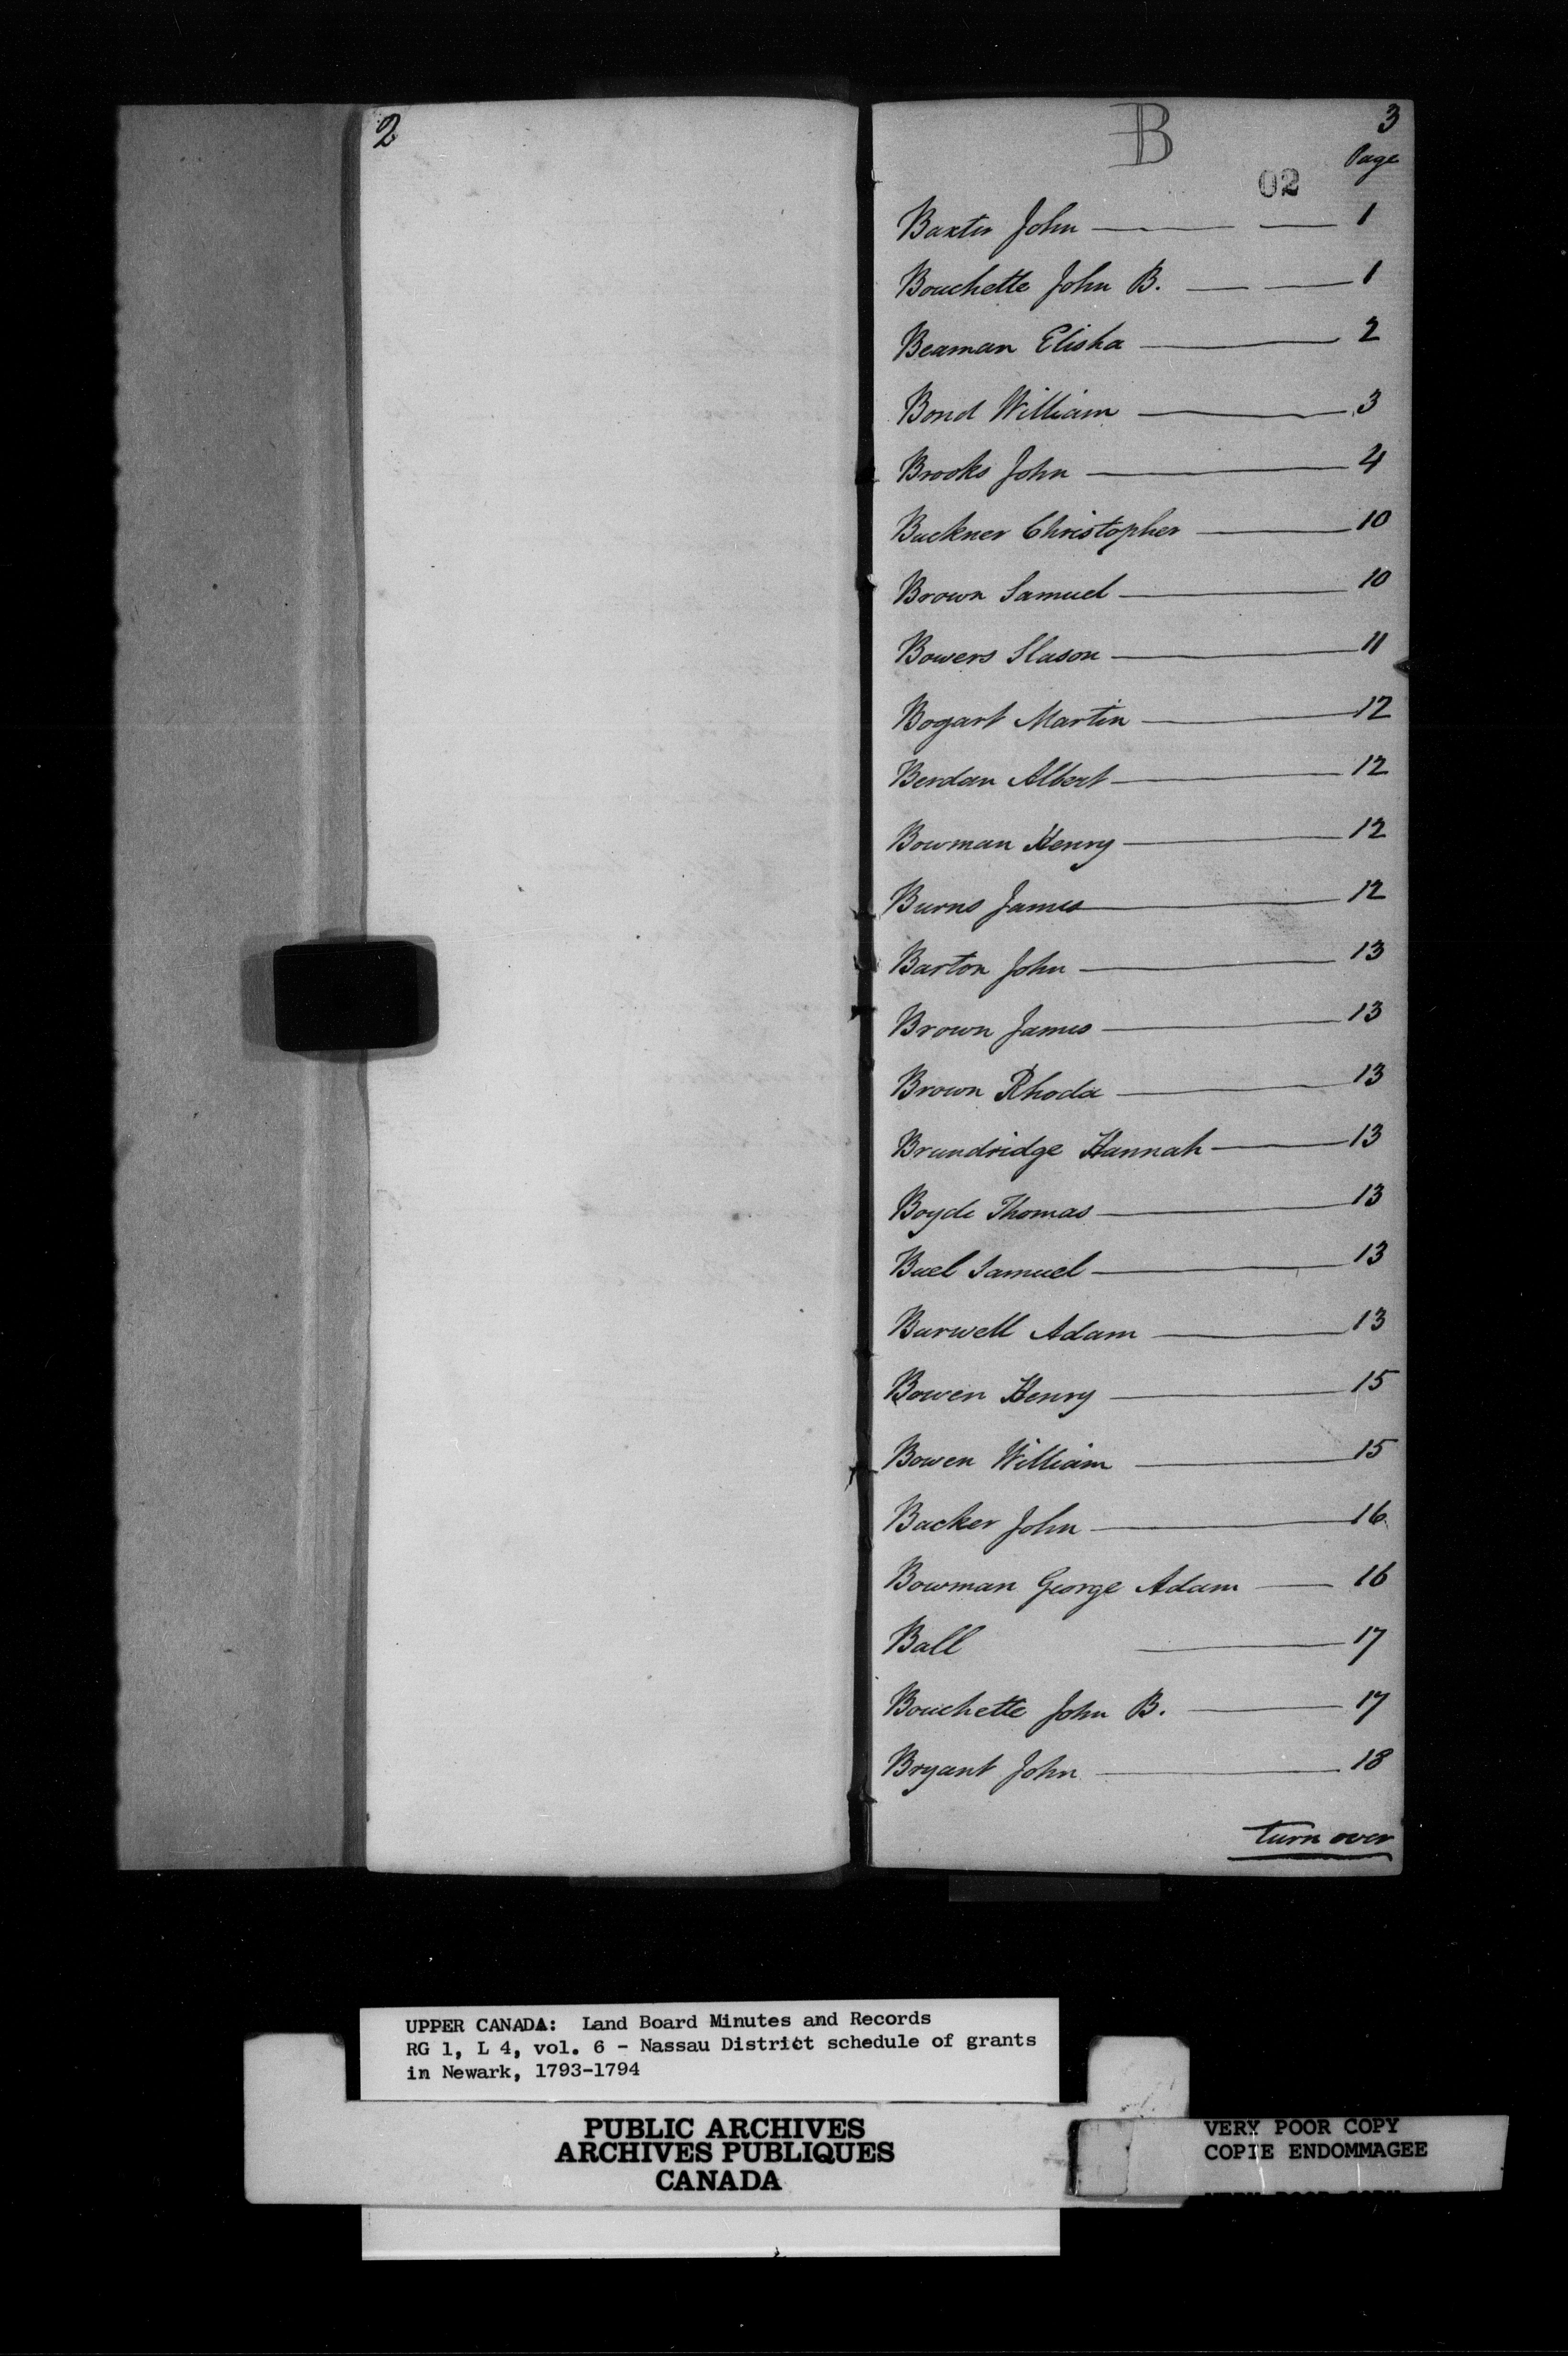 2
B
3
Page
02
Baxter John 1
Bouchette John B. 1
Beaman Elisha 2
Bond William 3
Brooks John 4
Buckner Christopher 10
Brown Samuel 10
Bowers Slason 11
Bogart Martin 12
Berdan Albert 12
Bowman Henry 12
Burns James 12
Barton John 13
Brown James 13
Brown Rhoda 13
Brundridge Hannah 13
Boyde Thomas 13
Buel Samuel 13
Burwell Adam 13
Bowen Henry 15
Bowen William 15
Backer John 16
Bowman George Adam 16
Ball 17
Bouchette John B. 17
Bryant John 18
turn over
UPPER CANADA: Land Board Minutes and Records
RG 1, L 4, vol. 6 - Nassau District schedule of grants
in Newark, 1793-1794
PUBLIC ARCHIVES
ARCHIVES PUBLIQUES
CANADA
VERY POOR COPY
COPIE ENDOMMAGEE